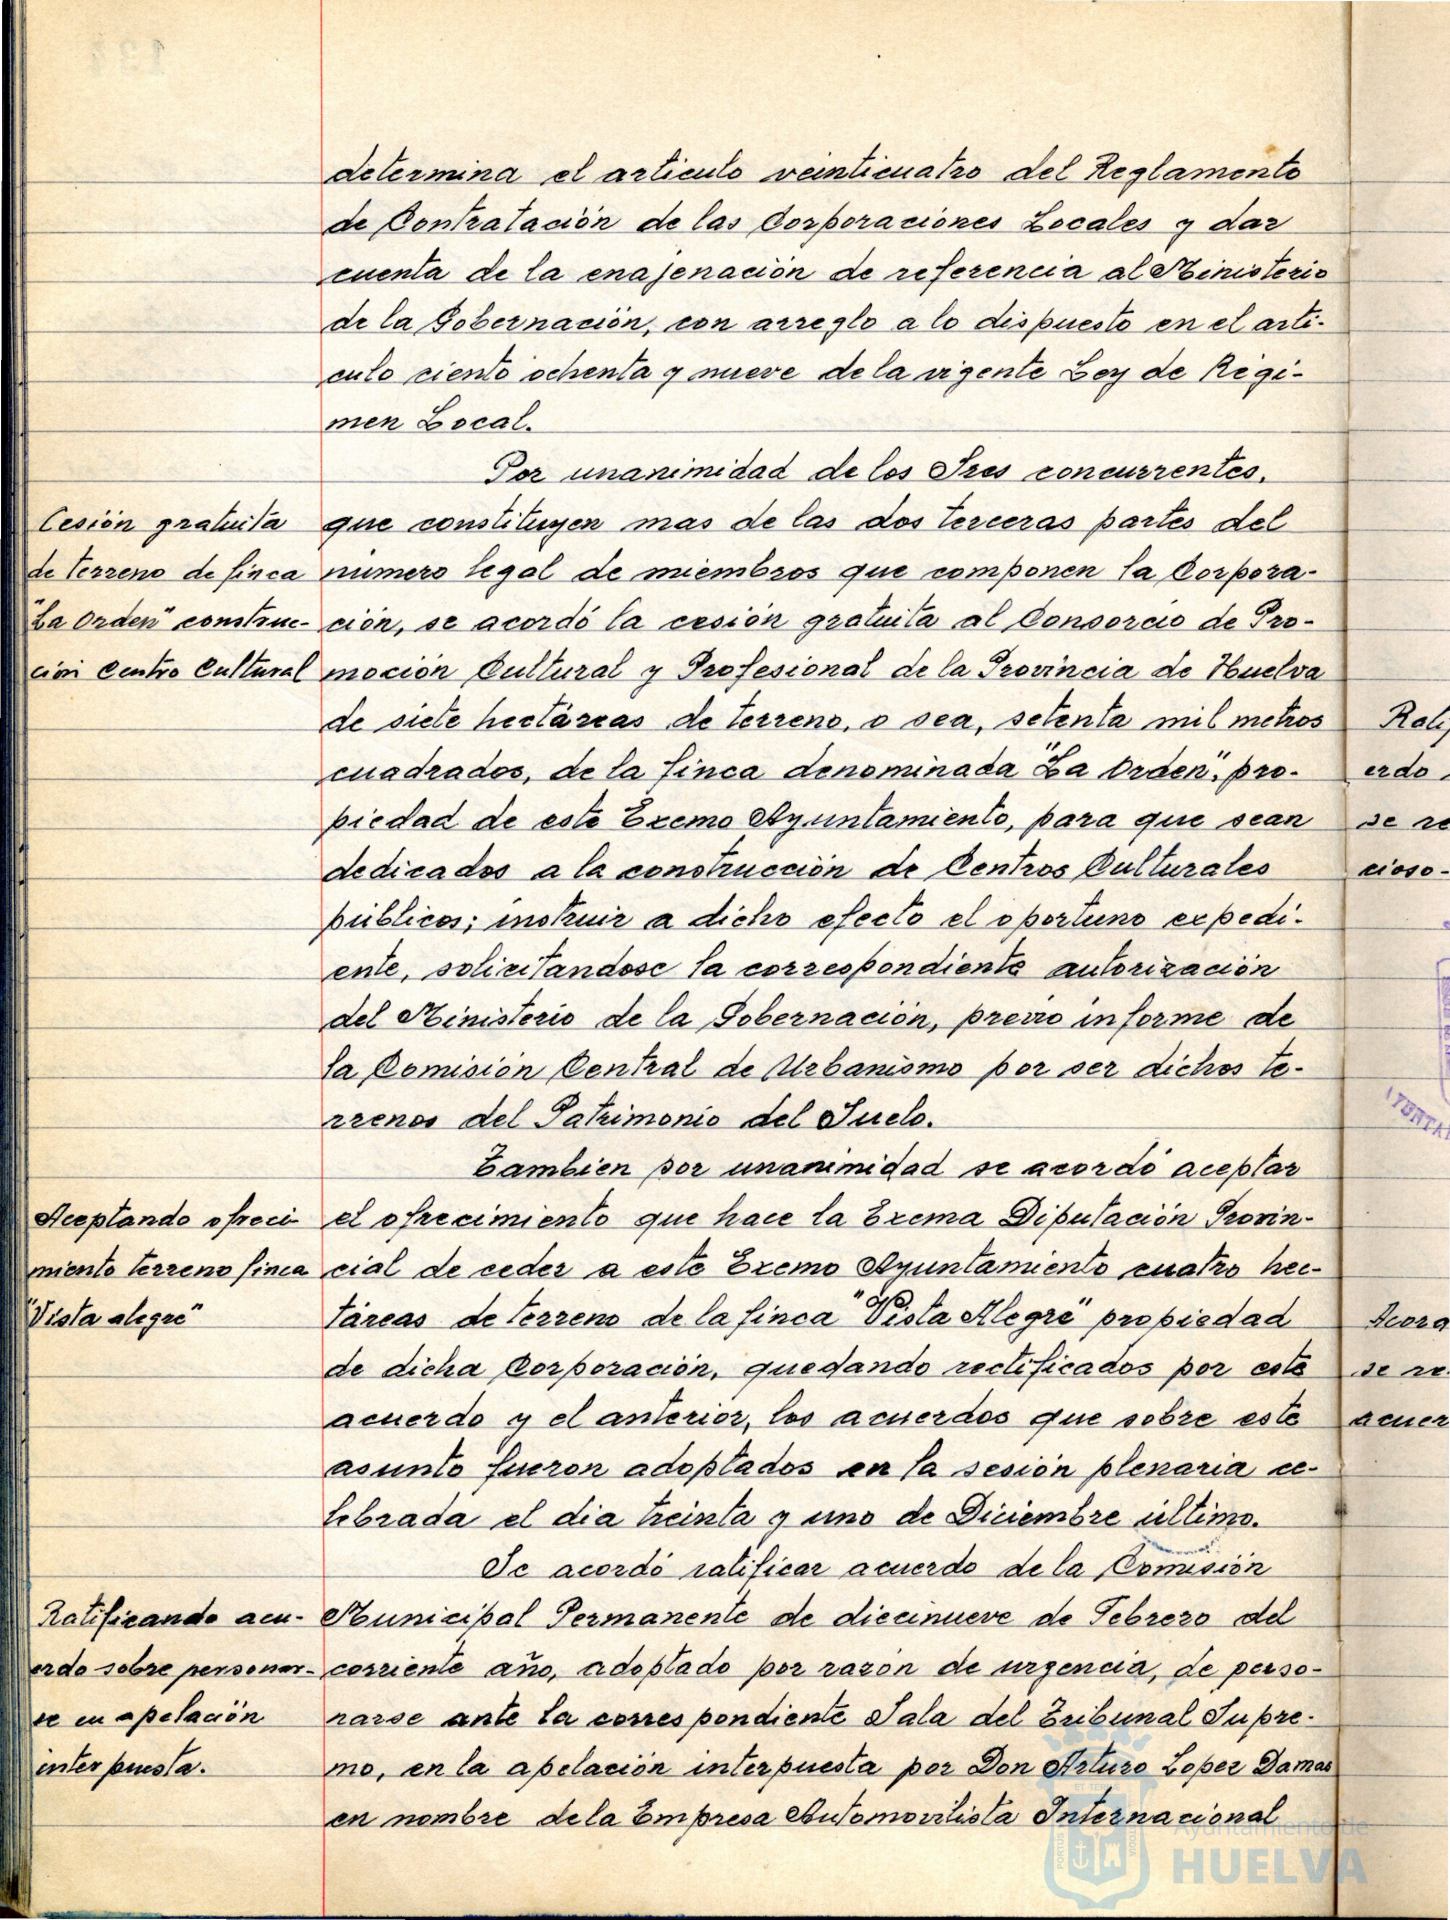 determina el articulo veinticuatro del Reglamento
de Contratación de las Corporaciones Locales y dar
cuenta de la enajenación de referencia al Ministerio
de la Gobernación, con arreglo a lo dispuesto en el arti-
culo ciento ochenta y nueve de la vigente Ley de Regi-
men Local.
Por unanimidad de los Sres concurrentes,
Cesión gratuita
de terreno de finca
"La Orden" construc-
ción Centro Cultural
que constituyen mas de las dos terceras partes del
número legal de miembros que componen la Corpora-
ción, se acordó la cesión gratuita al Consorcio de Pro-
moción Cultural y Profesional de la Provincia de Huelva
de siete hectáreas de terreno, o sea, setenta mil metros
cuadrados, de la finca denominada "La Orden", pro-
piedad de este Excmo Ayuntamiento, para que sean
dedicados a la construcción de Centros Culturales
públicos; instruir a dicho efecto el oportuno expedi-
ente, solicitandose la correspondiente autorización
del Ministerio de la Gobernación, previo informe de
la Comisión Central de Urbanismo por ser dichos te-
rrenos del Patrimonio del Suelo.
Tambien por unanimidad se acordó aceptar
Aceptando ofreci-
miento terreno finca
"Vista alegre"
el ofrecimiento que hace la Excma Diputación Provin-
cial de ceder a este Excmo Ayuntamiento cuatro hec-
táreas de terreno de la finca "Vista Alegre" propiedad
de dicha Corporación, quedando rectificados por este
acuerdo y el anterior, los acuerdos que sobre este
asunto fueron adoptados en la sesión plenaria ce-
lebrada el dia treinta y uno de Diciembre último.
Se acordó ratificar acuerdo de la Comisión
Ratificando acu-
erdo sobre personar-
se en apelación
interpuesta.
Municipal Permanente de diecinueve de Febrero del
corriente año, adoptado por razón de urgencia, de perso-
narse ante la correspondiente Sala del Tribunal Supre-
mo, en la apelación interpuesta por Don Arturo Lopez Damas
en nombre de la Empresa Automovilista Internacional
erdo
se re
cioso-
se re
acuer
Ayuntamiento de
HUELVA